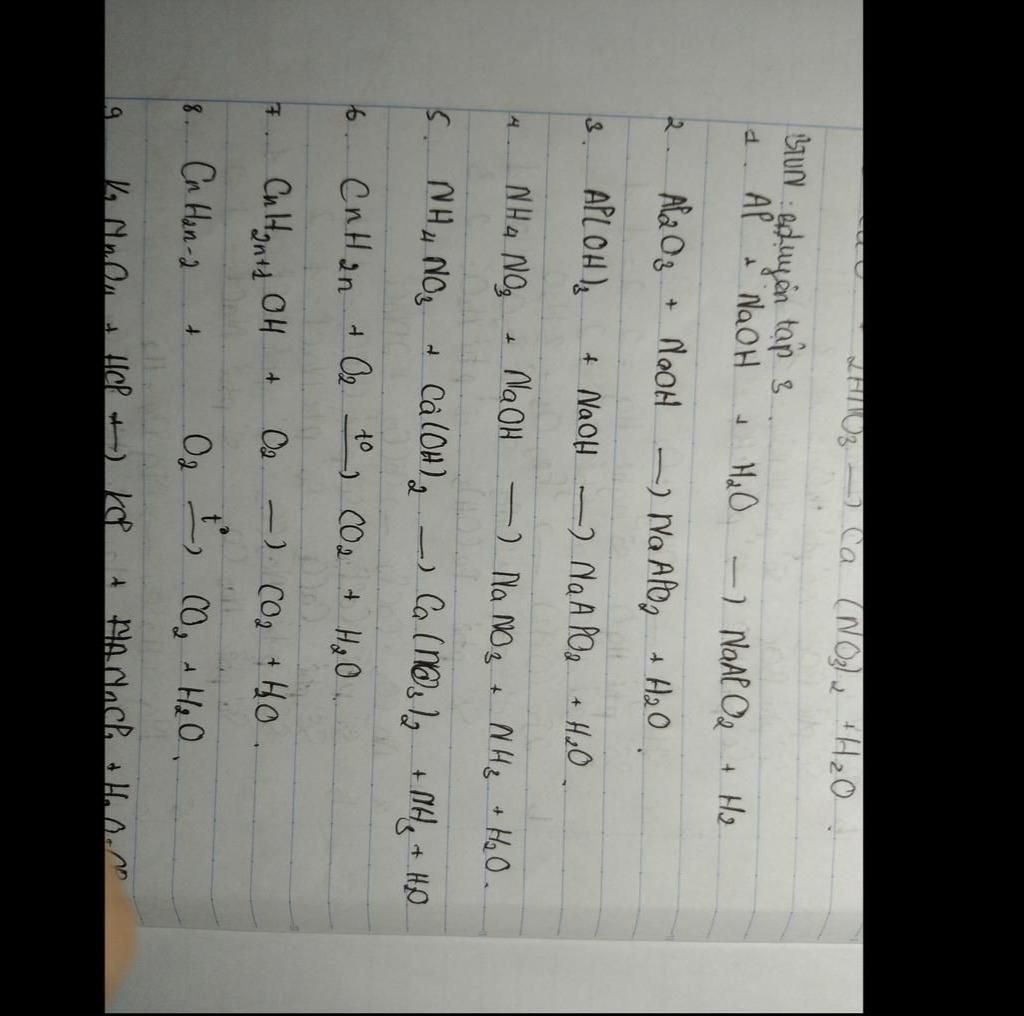 2HNO3 —) Ca (NO3)2 + H2O.
BTVN: luyện tập 3
1. Al + NaOH + H2O —) NaAlO2 + H2
2. Al2O3 + NaOH —) NaAlO2 + H2O.
3. Al(OH)3 + NaOH —) NaAlO2 + H2O.
4. NH4NO3 + NaOH —) NaNO3 + NH3 + H2O.
5. NH4NO3 + Ca(OH)2 —) Ca(NO3)2 + NH3 + H2O
6. CnH2n + O2 —t°—) CO2 + H2O.
7. CnH2n+1OH + O2 —) CO2 + H2O.
8. CnH2n-2 + O2 —t°—) CO2 + H2O.
9. + HCl —) KCl + MnCl2 + H2O